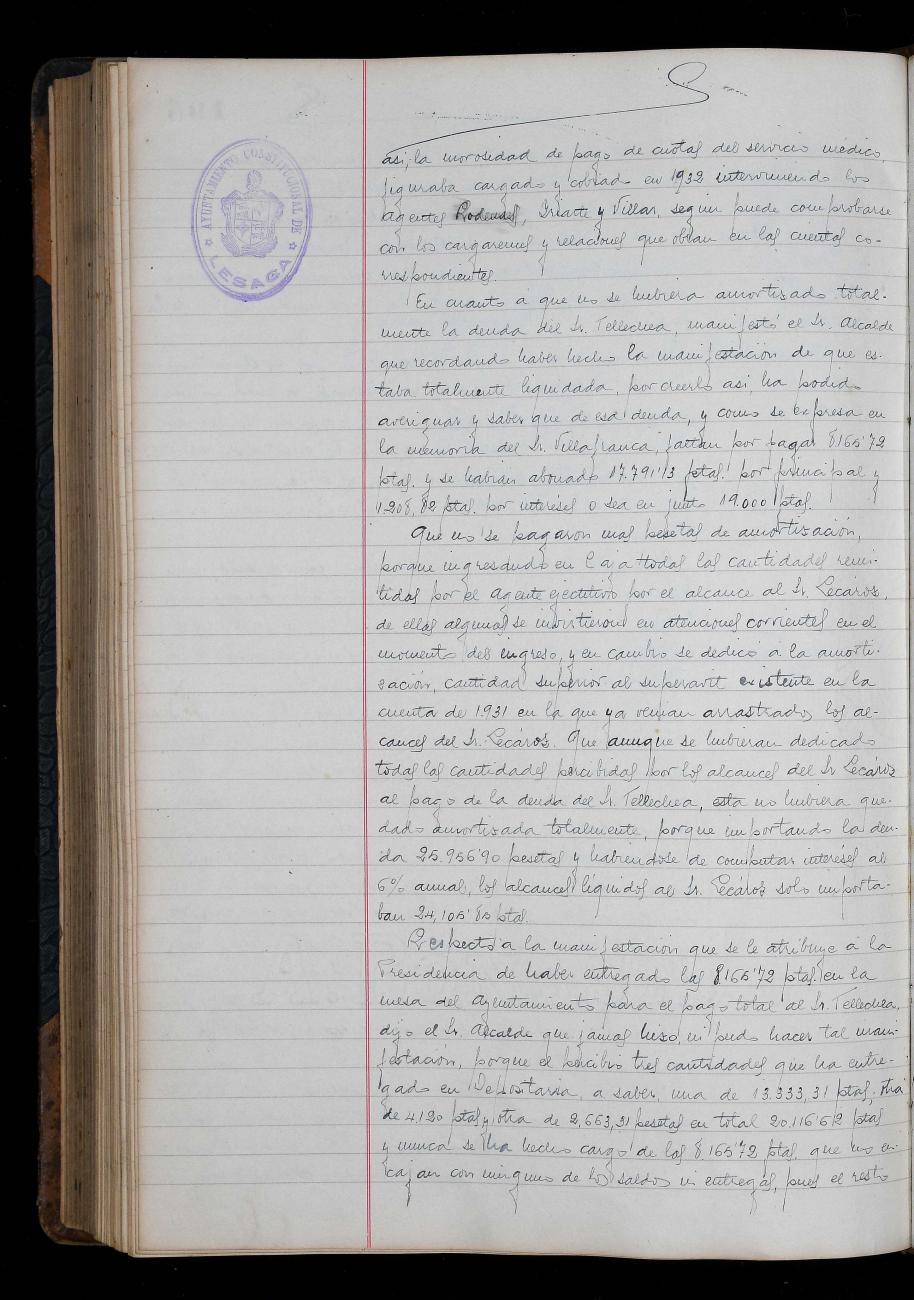 AYUNTAMIENTO CONSTITUCIONAL DE
LESACA
así, la morosidad de pago de cuotas del servicio médico,
figuraba cargado y cobrado en 1932 interviniendo los
agentes Iriarte y Villar, según puede comprobarse
con los cargaremes y relaciones que obran en las cuentas co-
rrespondientes.
En cuanto á que no se hubiera amortizado total-
mente la deuda del Sr. Tellechea, manifestó el Sr. Alcalde
que recordando haber hecho la manifestación de que es-
taba totalmente liquidada, por creerlo así, ha podido
averiguar y saber que de esa deuda, y como se expresa en
la memoria del Sr. Villafranca, faltan por pagar 8165'72
ptas. y se habían abonado 17.791'13 ptas. por principal y
1.208,82 ptas. por intereses o sea en junto 19.000 ptas.
Que no se pagaron mas pesetas de amortización,
porque ingresando en Caja todas las cantidades remi-
tidas por el Agente ejecutivo por el alcance al Sr. Lecároz,
de ellas algunas se invirtieron en atenciones corrientes en el
momento del ingreso, y en cambio se dedicó a la amorti-
zación, cantidad superior al superavit existente en la
cuenta de 1.931 en la que ya venían arrastrados los al-
cances del Sr. Lecároz. Que aunque se hubieran dedicado
todas las cantidades percibidas por los alcances del Sr Lecároz
al pago de la deuda del Sr. Tellechea, esta no hubiera que-
dado amortizada totalmente, porque importando la deu-
da 25.956'90 pesetas y habiendose de computar intereses al
6% anual, los alcances líquidos al Sr. Lecároz solo importa-
ban 24,105'85 ptas.
Respecto a la manifestación que se le atribuye á la
Presidencia de haber entregado las 8.165'72 ptas. en la
mesa del Ayuntamiento para el pago total al Sr. Tellechea,
dijo el Sr. Alcalde que jamás hizo, ni pudo hacer tal mani-
festación, porque el percibió tres cantidades que ha entre-
gado en Depositaría, a saber, una de 13.333,31 ptas, otra
de 4.120 ptas y otra de 2,663,31 pesetas en total 20.116'62 ptas
y nunca se ha hecho cargo de las 8.165'72 ptas. que no en-
cajan con ninguno de los saldos ni entregas, pues el resto